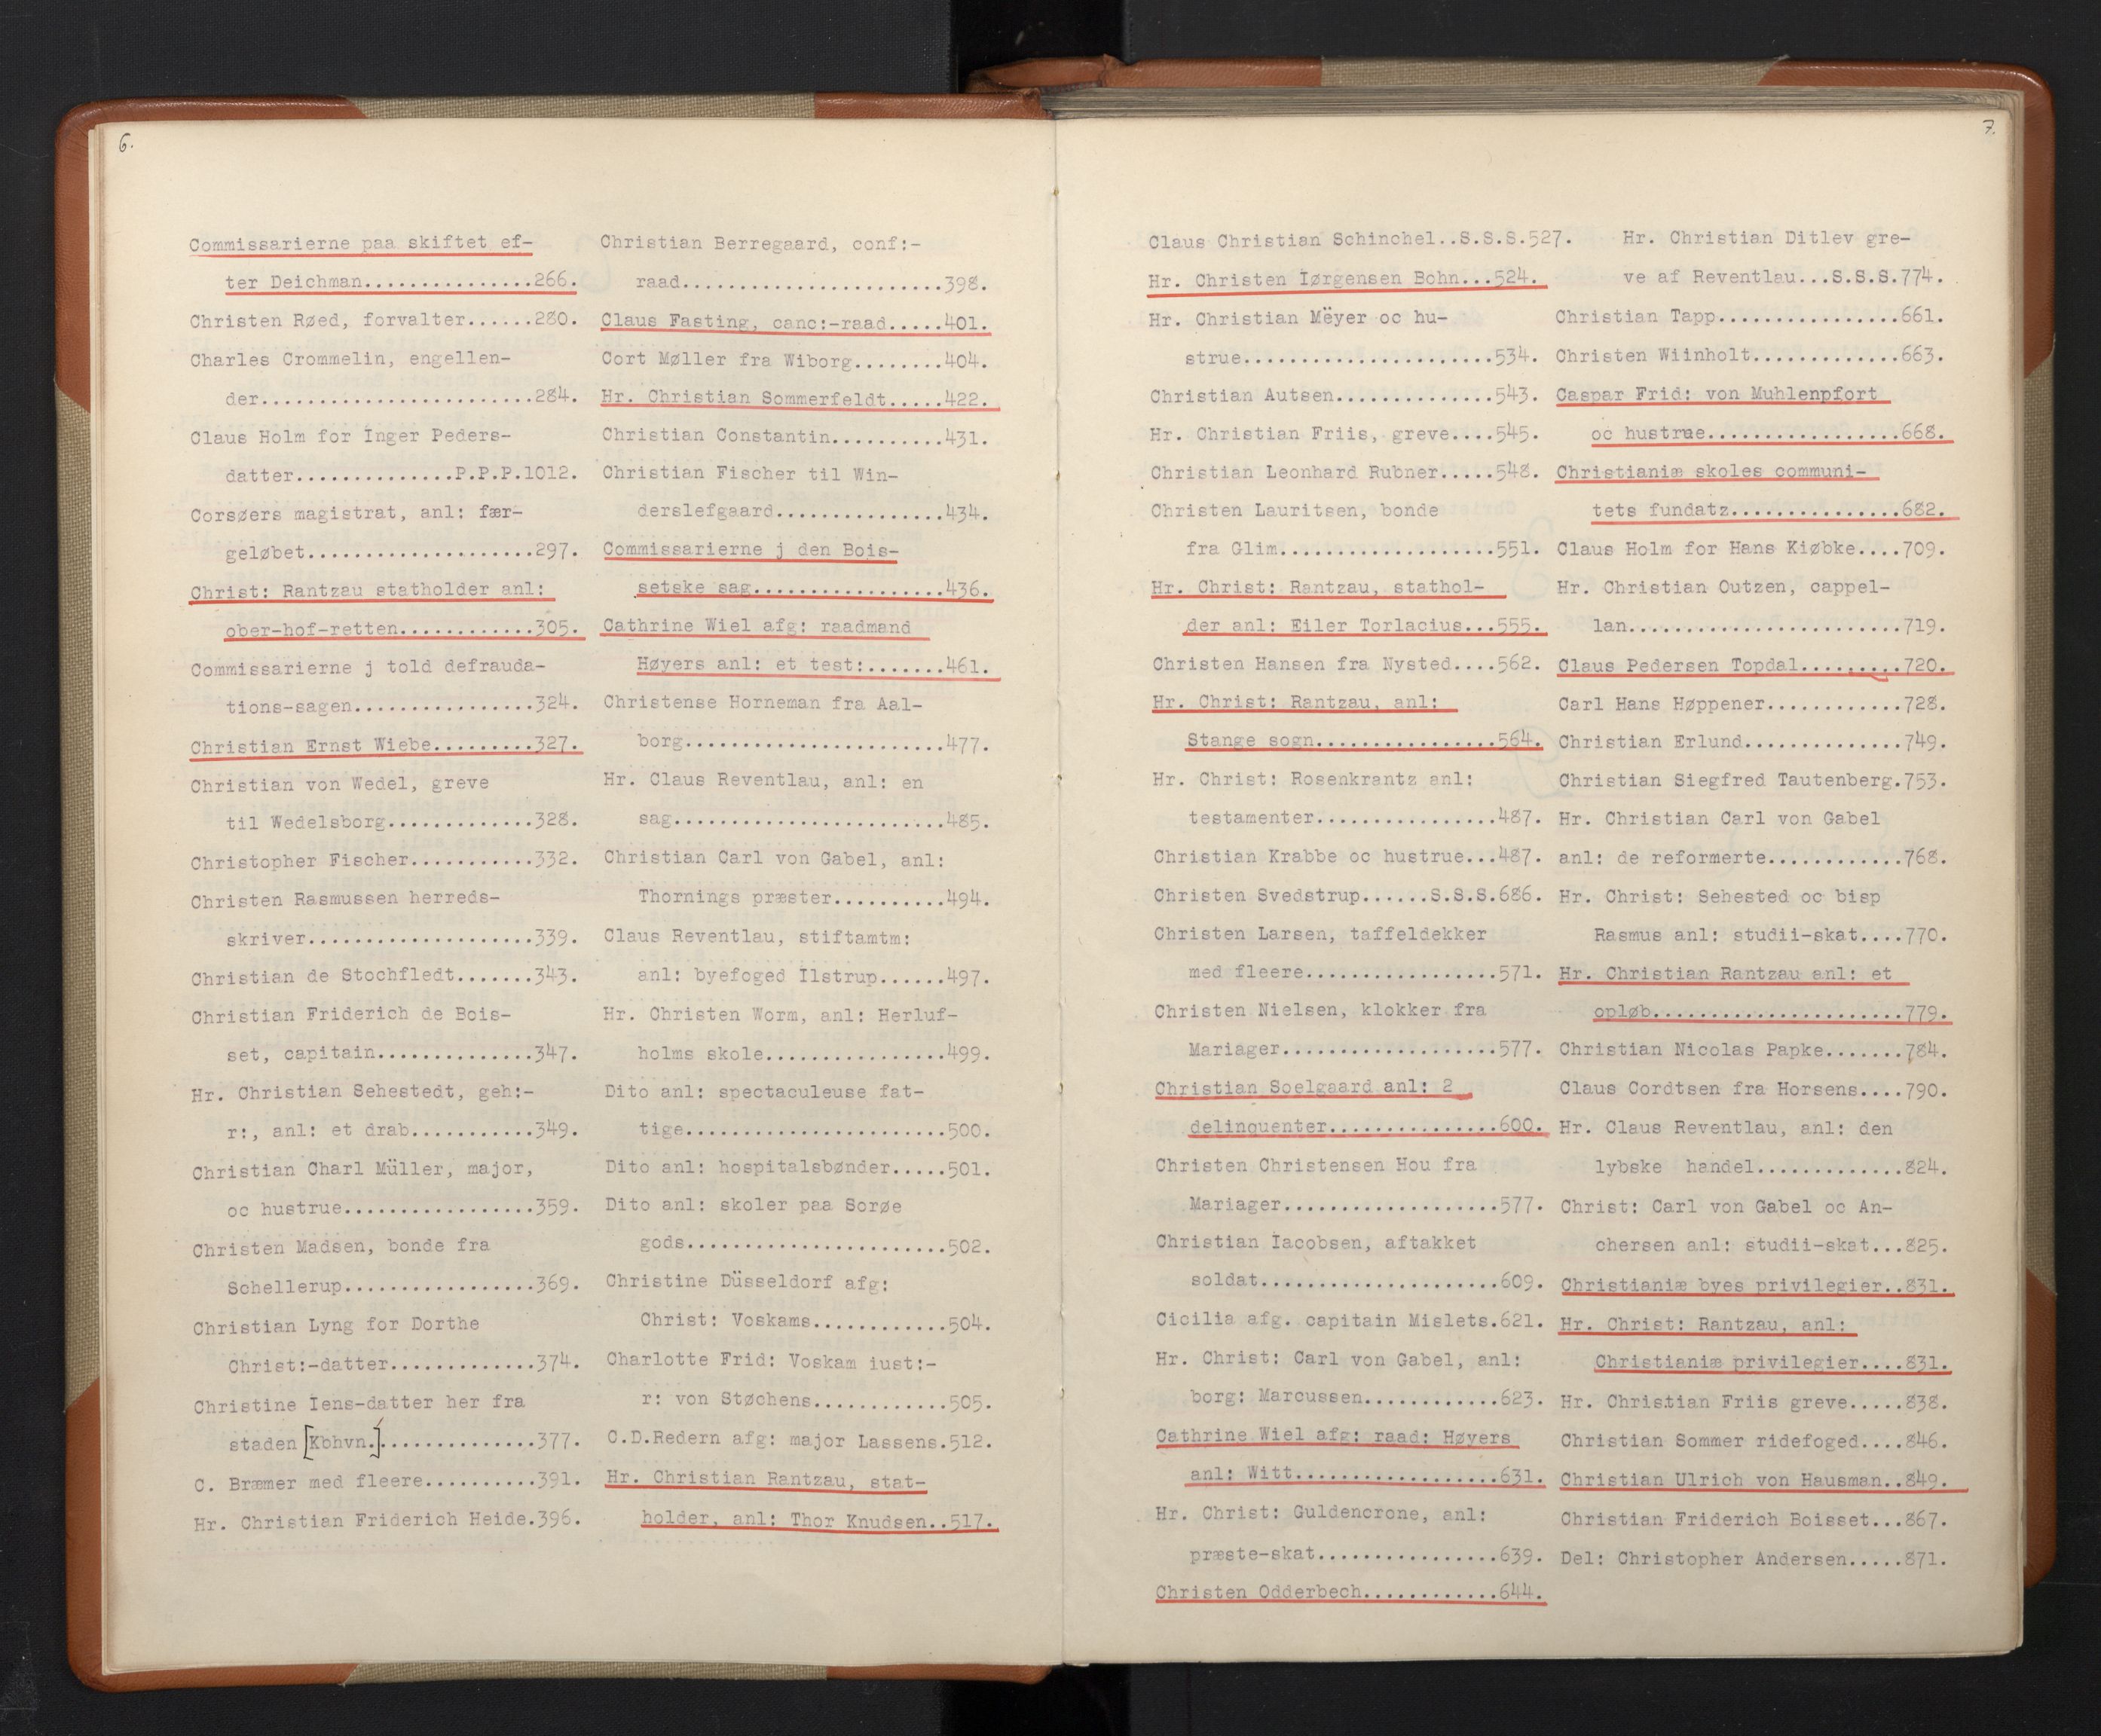 6.
Commissarierne paa skiftet ef-
ter Deichman...............266.
Christen Røed, forvalter......280.
Charles Crommelin, engellen-
der........................284.
Claus Holm for Inger Peders-
datter..............P.P.P.1012.
Corsøers magistrat, anl: fær-
geløbet....................297.
Christ: Rantzau statholder anl:
ober-hof-retten............305.
Commissarierne j told defrauda-
tions-sagen................324.
Christian Ernst Wiebe.........327.
Christian von Wedel, greve
til Wedelsborg.............328.
Christopher Fischer...........332.
Christen Rasmussen herreds-
skriver....................339.
Christian de Stochfledt.......343.
Christian Friderich de Bois-
set, capitain..............347.
Hr. Christian Sehestedt, geh:-
r:, anl: et drab...........349.
Christian Charl Müller, major,
oc hustrue.................359.
Christen Madsen, bonde fra
Schellerup.................369.
Christian Lyng for Dorthe
Christ:-datter.............374.
Christine Iens-datter her fra
staden [Kbhvn.]..............377.
C. Bræmer med fleere..........391.
Hr. Christian Friderich Heide.396.
Christian Berregaard, conf:-
raad.......................398.
Claus Fasting, canc:-raad.....401.
Cort Møller fra Wiborg........404.
Hr. Christian Sommerfeldt.....422.
Christian Constantin..........431.
Christian Fischer til Win-
derslefgaard...............434.
Commissarierne j den Bois-
setske sag.................436.
Cathrine Wiel afg: raadmand
Høyers anl: et test:.......461.
Christense Horneman fra Aal-
borg.......................477.
Hr. Claus Reventlau, anl: en
sag........................485.
Christian Carl von Gabel, anl:
Thornings præster..........494.
Claus Reventlau, stiftamtm:
anl: byefoged Ilstrup......497.
Hr. Christen Worm, anl: Herluf-
holms skole................499.
Dito anl: spectaculeuse fat-
tige.......................500.
Dito anl: hospitalsbønder.....501.
Dito anl: skoler paa Sorøe
gods.......................502.
Christine Düsseldorf afg:
Christ: Voskams............504.
Charlotte Frid: Voskam iust:-
r: von Støchens............505.
C.D.Redern afg: major Lassens.512.
Hr. Christian Rantzau, stat-
holder, anl: Thor Knudsen..517.
7.
Claus Christian Schinchel..S.S.S.527.
Hr. Christen Iørgensen Bohn...524.
Hr. Christian Mëyer oc hu-
strue......................534.
Christian Autsen..............543.
Hr. Christian Friis, greve....545.
Christian Leonhard Rubner.....548.
Christen Lauritsen, bonde
fra Glim...................551.
Hr. Christ: Rantzau, stathol-
der anl: Eiler Torlacius...555.
Christen Hansen fra Nysted....562.
Hr. Christ: Rantzau, anl:
Stange sogn................564.
Hr. Christ: Rosenkrantz anl:
testamenter................487.
Christian Krabbe oc hustrue...487.
Christen Svedstrup......S.S.S.686.
Christen Larsen, taffeldekker
med fleere.................571.
Christen Nielsen, klokker fra
Mariager...................577.
Christian Soelgaard anl: 2
delinquenter...............600.
Christen Christensen Hou fra
Mariager...................577.
Christian Iacobsen, aftakket
soldat.....................609.
Cicilia afg. capitain Mislets.621.
Hr. Christ: Carl von Gabel, anl:
borg: Marcussen............623.
Cathrine Wiel afg: raad: Høyers
anl: Witt..................631.
Hr. Christ: Guldencrone, anl:
præste-skat................639.
Christen Odderbech............644.
Hr. Christian Ditlev gre-
ve af Reventlau...S.S.S.774.
Christian Tapp................661.
Christen Wiinholt.............663.
Caspar Frid: von Muhlenpfort
oc hustrue.................668.
Christianiæ skoles communi-
tets fundatz...............682.
Claus Holm for Hans Kiøbke....709.
Hr. Christian Outzen, cappel-
lan........................719.
Claus Pedersen Topdal.........720.
Carl Hans Høppener............728.
Christian Erlund..............749.
Christian Siegfred Tautenberg.753.
Hr. Christian Carl von Gabel
anl: de reformerte............768.
Hr. Christ: Sehested oc bisp
Rasmus anl: studii-skat....770.
Hr. Christian Rantzau anl: et
opløb......................779.
Christian Nicolas Papke.......784.
Claus Cordtsen fra Horsens....790.
Hr. Claus Reventlau, anl: den
lybske handel.............824.
Christ: Carl von Gabel oc An-
chersen anl: studii-skat...825.
Christianiæ byes privilegier..831.
Hr. Christ: Rantzau, anl:
Christianiæ privilegier....831.
Hr. Christian Friis greve.....838.
Christian Sommer ridefoged....846.
Christian Ulrich von Hausman..849.
Christian Friderich Boisset...867.
Del: Christopher Andersen.....871.